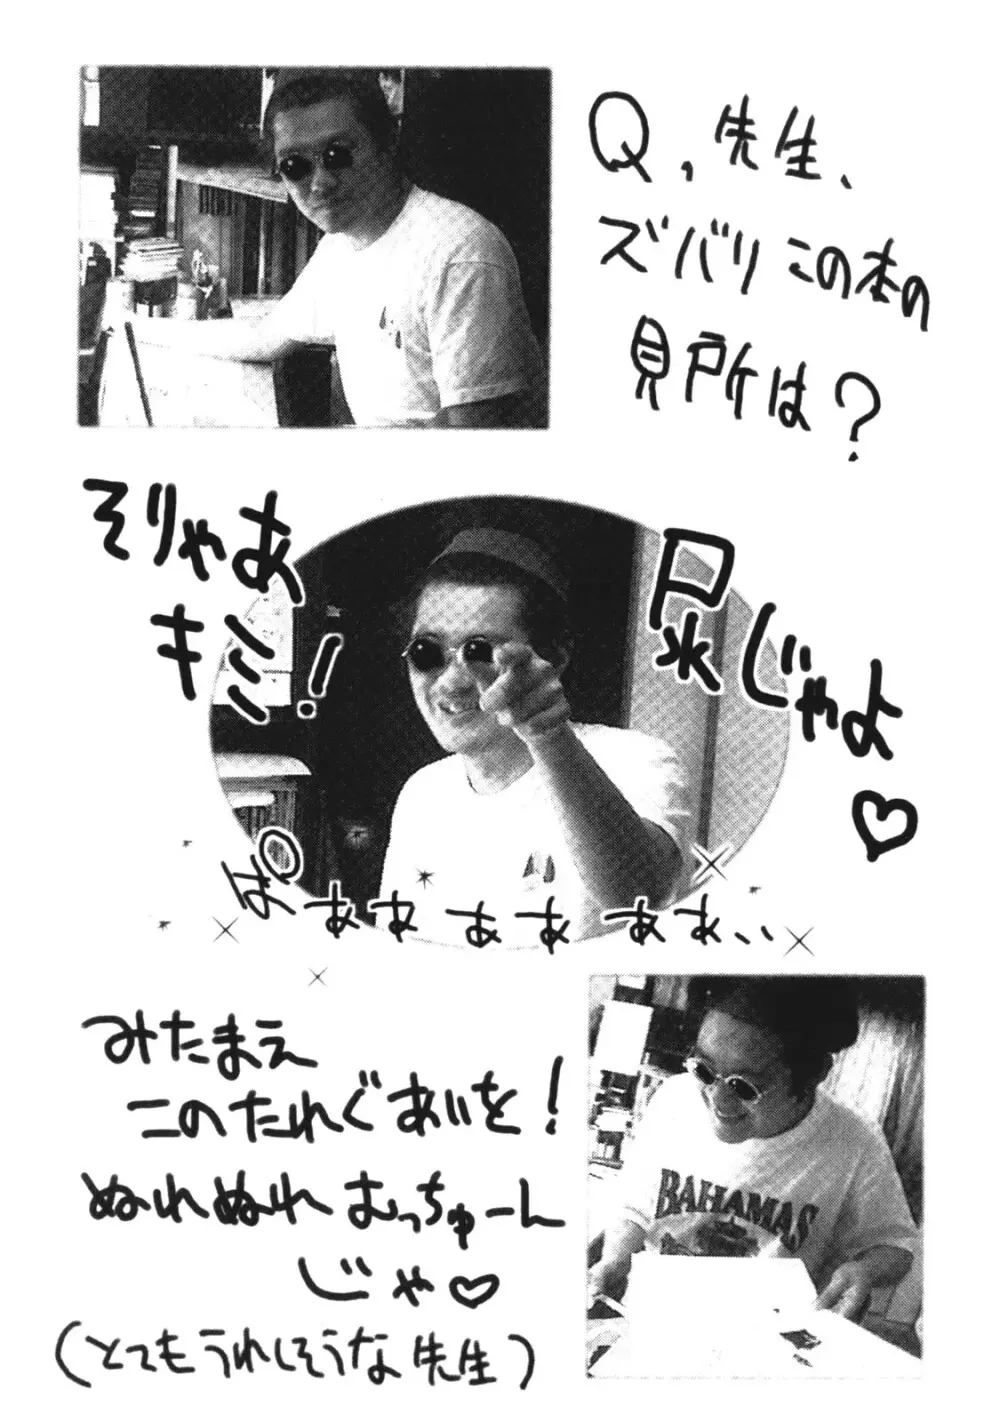 Q、先生、
ズバリこの本の
見所は？
そりゃあ
キミ！
尿じゃよ♡
ぱぁぁぁぁぁぁ、、
みたまえ
このたれぐあいを！
ぬれぬれむっちゅーん
じゃ♡
（とてもうれしそうな先生）
BAHAMAS